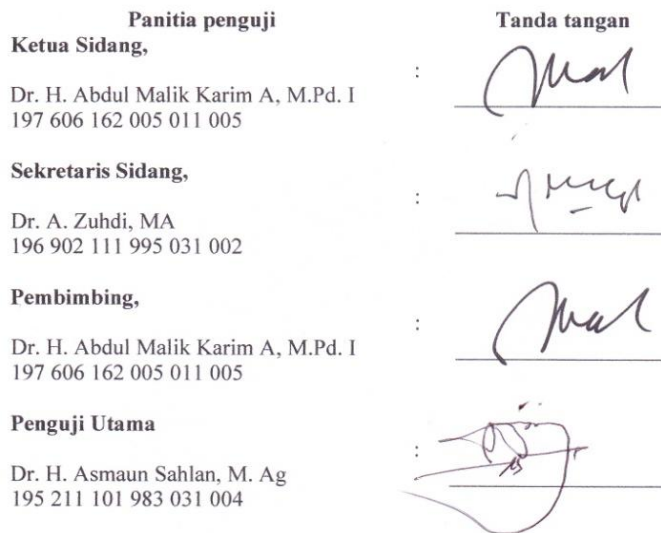 Panitia penguji Tanda tangan
Ketua Sidang,
:
Dr. H. Abdul Malik Karim A, M.Pd. I
197 606 162 005 011 005
Sekretaris Sidang,
:
Dr. A. Zuhdi, MA
196 902 111 995 031 002
Pembimbing,
:
Dr. H. Abdul Malik Karim A, M.Pd. I
197 606 162 005 011 005
Penguji Utama
:
Dr. H. Asmaun Sahlan, M. Ag
195 211 101 983 031 004